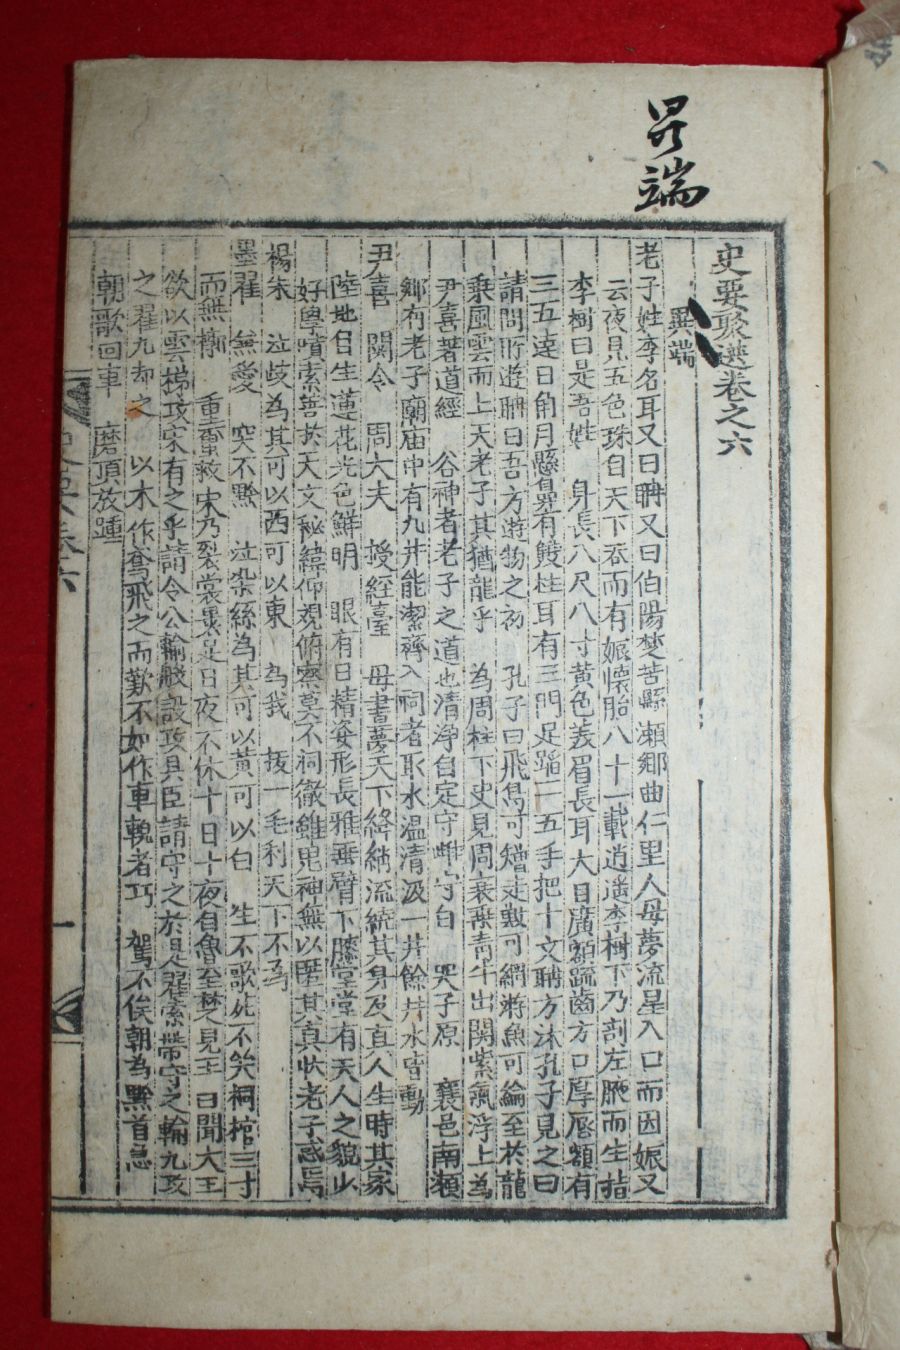 异端
史要聚選卷之六
異端
老子姓李名耳又曰聃又曰伯陽楚苦縣瀬鄉曲仁里人母夢流星入口而因娠又
云夜見五色珠自天下吞而有娠懷胎八十一載逍遥李樹下乃剖左腋而生指
李樹曰是吾姓 身長八尺八寸黃色美眉長耳大目廣額疏齒方口厚唇額有
三五達日角月懸鼻有雙柱耳有三門足蹈二五手把十文聃方沐孔子見之曰
請問所遊聃曰吾方遊物之初 孔子曰飛爲可矰走獸可網游魚可綸至於龍
乘風雲而上天老子其猶龍乎 為周柱下史見周衰乘青牛出關紫氣浮上為
尹喜著道經 谷神者老子之道也清淨自定守雌守白 哭子原 襄邑南瀬
鄉有老子廟庙中有九井能潔齊入祠者取水温清汲一井餘井水皆動
尹喜 関令 周大夫 授經臺 母晝夢天下絳綃流繞其身及真人生時其家
陸地自生蓮花光色鮮明 眼有日精姿形長雅垂臂下膝堂堂有天人之貌少
好學噴素善於天文秘緯仰观俯察莫不洞徹雖鬼神無以匿其真状老子感焉
楊朱 泣歧為其可以西可以東 為我 拔一毛利天下不為
墨翟 無愛 突不黔 泣染絲為其可以黃可以白 生不歌死不哭桐棺三寸
而無槨 重繭救宋乃裂裳裹足日夜不休十日十夜自魯至楚見王曰聞大王
欲以雲梯攻宋有之乎請令公輸般設攻具臣請守之於是翟縈帶守之輸九攻
之翟九却之 以木作鳶飛之而歎不如作車輗者巧 駕不俟朝為黔首急
朝歌回車 磨頂放踵